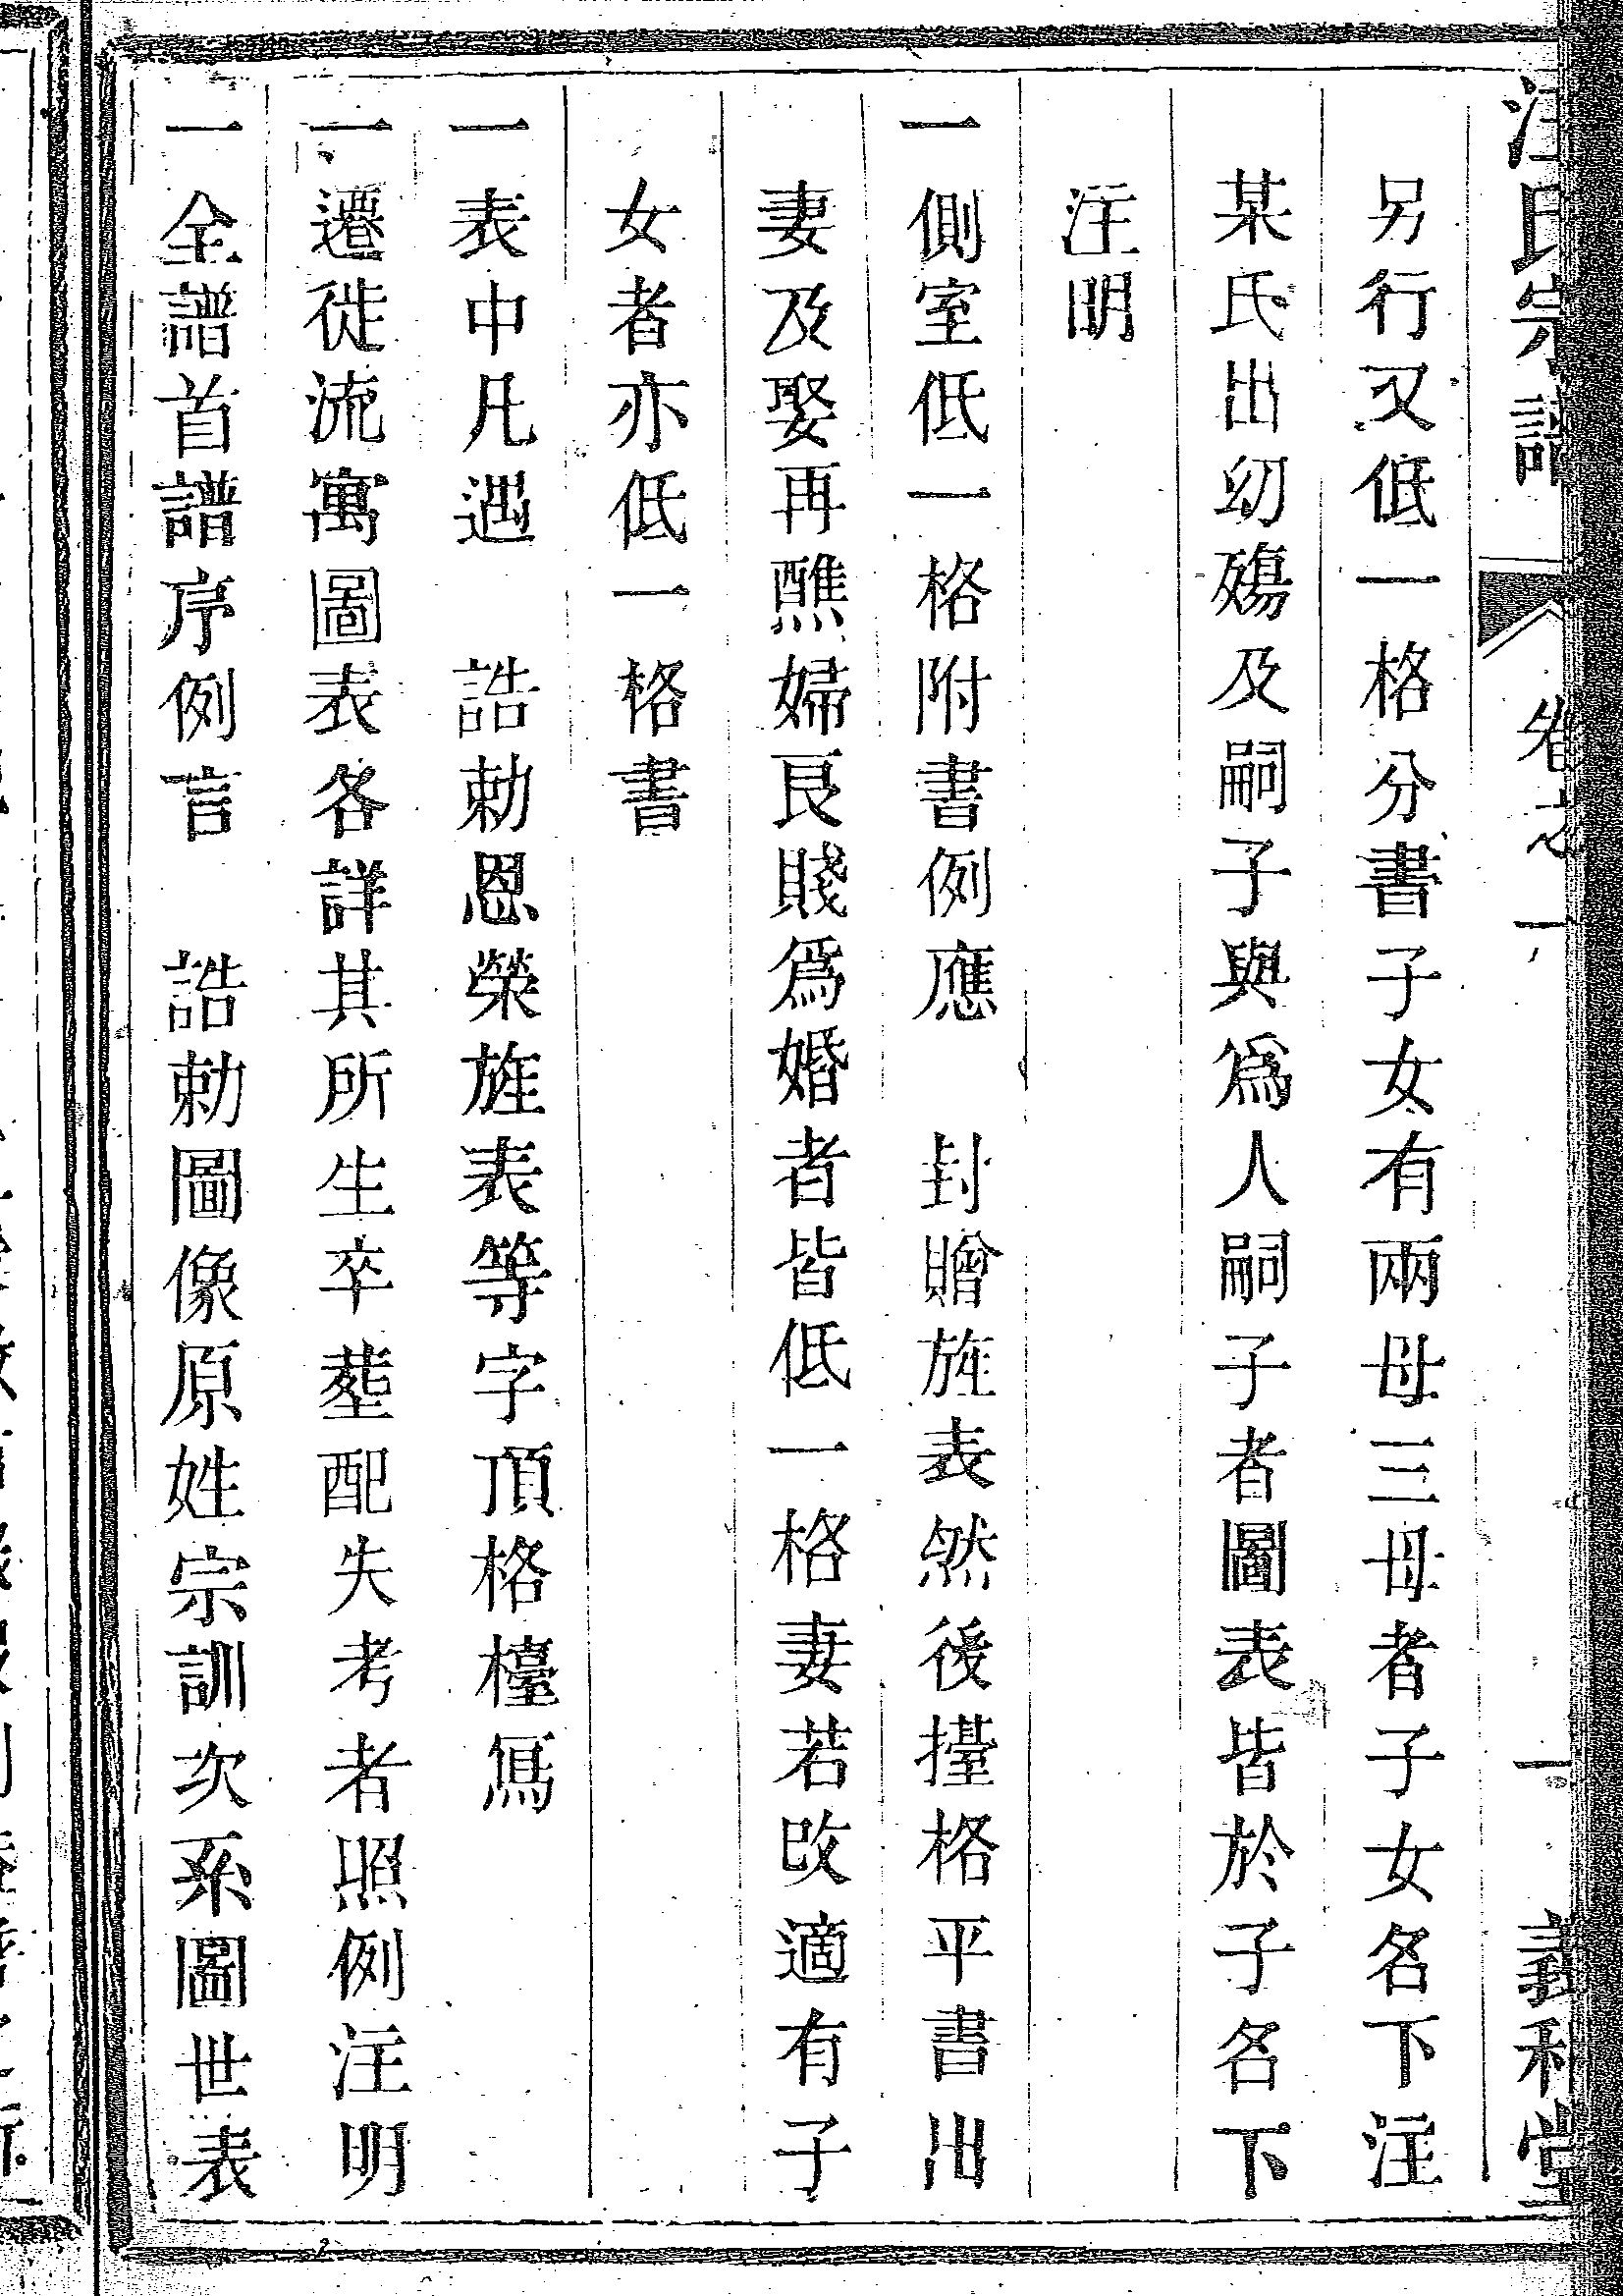 汪氏宗譜 卷之一 一 義和堂
另行又低一格分書子女有兩母三母者子女名下注
某氏出幼殤及嗣子與爲人嗣子者圖表皆於子名下
注明
一側室低一格附書例應 封贈旌表然後擡格平書出
妻及娶再醮婦良賤爲婚者皆低一格妻若改適有子
女者亦低一格書
一表中凡遇 誥勅恩榮旌表等字頂格檯寫
一遷徙流寓圖表各詳其所生卒塟配失考者照例注明
一全譜首譜序例言 誥勅圖像原姓宗訓次系圖世表